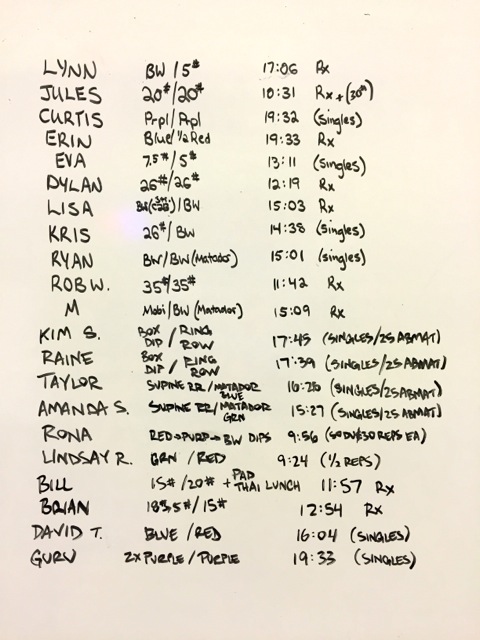 LYNN BW / 5# 17:06 Rx
JULES 20#/20# 10:31 Rx + (30#)
CURTIS Prpl / Prpl 19:32 (singles)
ERIN Blue/ 1/2 Red 19:33 Rx
EVA 7.5# / 5# 13:11 (singles)
DYLAN 26#/26# 12:19 Rx
LISA / BW 15:03 Rx
KRIS 26# / BW 14:38 (singles)
RYAN BW/ BW (Matador) 15:01 (singles)
ROB W. 35#/35# 11:42 Rx
M Mobi / BW (Matador) 15:09 Rx
KIM S. BOX DIP / RING ROW 17:45 (SINGLES/25 ABMAT)
RAINE BOX DIP / RING ROW 17:39 (SINGLES/25 ABMAT)
TAYLOR SUPINE RR / MATADOR BLUE 16:26 (SINGLES/25 ABMAT)
AMANDA S. SUPINE RR / MATADOR GRN 15:27 (SINGLES/25 ABMAT)
RONA RED → PURP → BW DIPS 9:56 (50 DU$30 REPS EA)
LINDSAY R. GRN / RED 9:24 (1/2 REPS)
BILL 15# / 20# + PAD THAI LUNCH 11:57 Rx
BRIAN / 15# 12:54 Rx
DAVID T. BLUE / RED 16:04 (SINGLES)
GURU 2x PURPLE / PURPLE 19:33 (SINGLES)